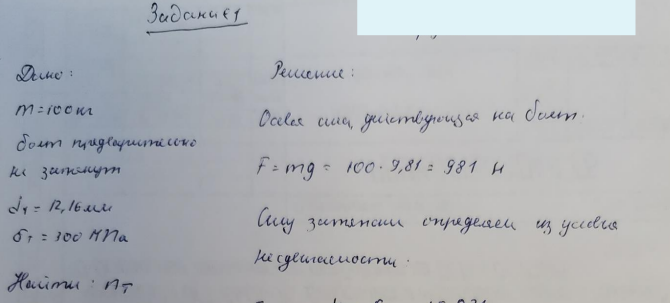 Задание 1
Дано:
m=100кг
болт предварительно
не затянут
d₁ = 12,16мм
σт = 300 МПа
Найти: nт
Решение:
Осевая сила, действующая на болт.
F = mg = 100 · 9,81 = 981 Н
Силу затяжки определяем из условия
несдвигаемости.